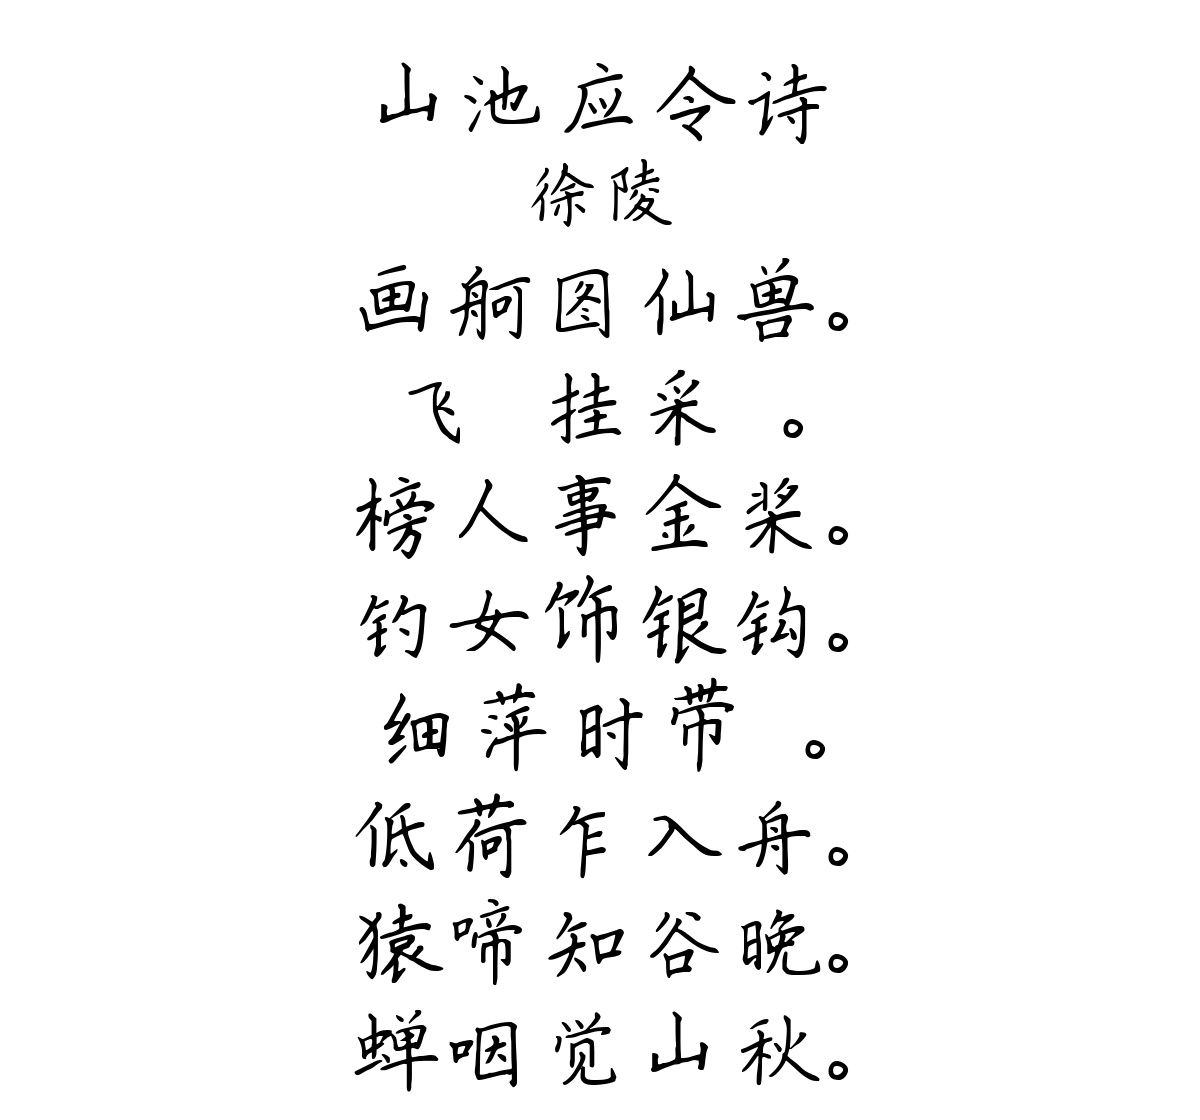 山池应令诗
徐陵
画舸图仙兽。
飞 挂采 。
榜人事金桨。
钓女饰银钩。
细萍时带 。
低荷乍入舟。
猿啼知谷晚。
蝉咽觉山秋。